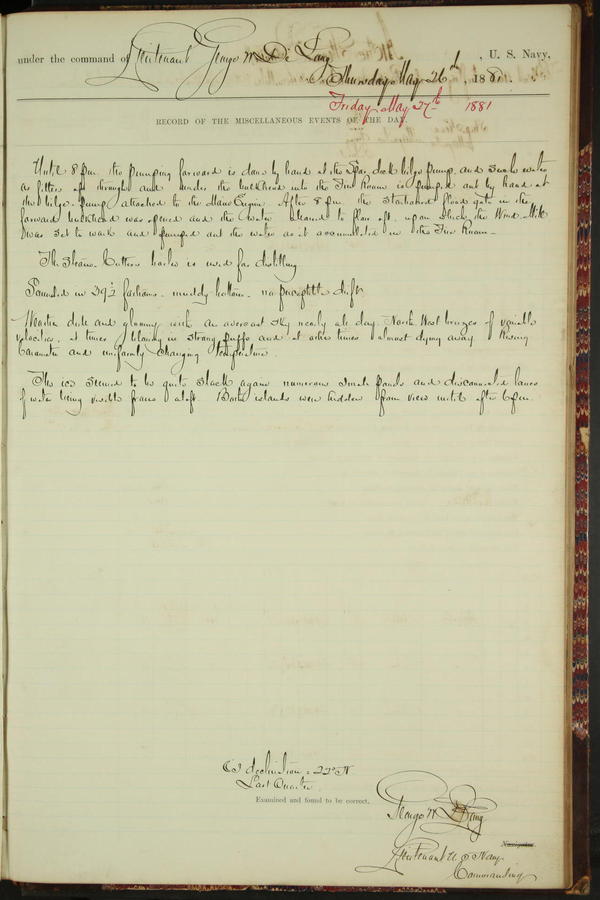 under the command of Lieutenant George W. De Long, U. S. Navy,
Thursday May 26th, 1881.
Friday May 27th 1881
RECORD OF THE MISCELLANEOUS EVENTS OF THE DAY.
Until 8 p.m. the pumping forward is done by hand at the Spar deck bilge pump, and such water
as filters through and under the bulkhead into the Fire Room is pumped out by hand at
the bilge pump attached to the Main Engine. After 8 p.m. the starboard flood gate in the
forward bulkhead was opened and the water allowed to flow aft, upon which the Wind Mill
was set to work and pumped out the water as it accumulated in the Fire Room.
The Steam Cutters boiler is used for distilling
Sounded in 39½ fathoms. muddy bottom. no perceptible drift.
Weather dull and gloomy with an overcast sky nearly all day. North West breezes of variable
velocities, at times blowing in strong puffs and at other times almost dying away. Rising
barometer and uniformly changing temperature.
The ice seemed to be quite slack again numerous small ponds and disconnected lanes
of water being visible from aloft. Both islands were hidden from view until after 6 p.m.
☾'s declination = 22° N
Last Quarter
Examined and found to be correct.
George W. De Long
Navigator.
Lieutenant U. S. Navy
Commanding